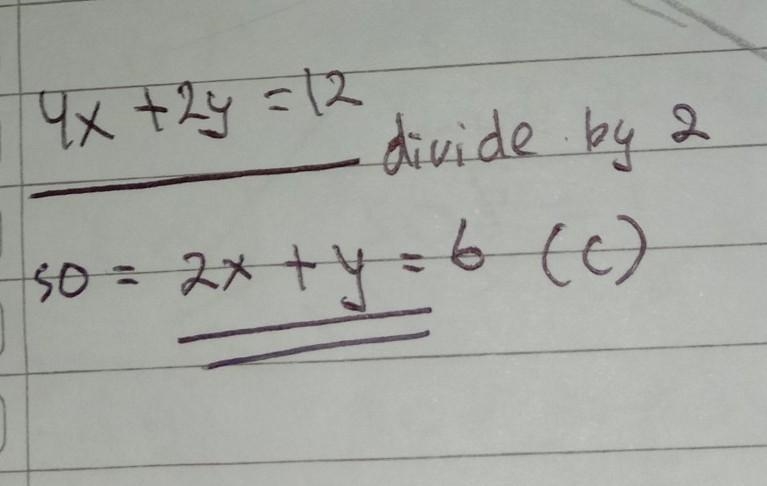 4x + 2y = 12
divide by 2
so = 2x + y = 6 (c)